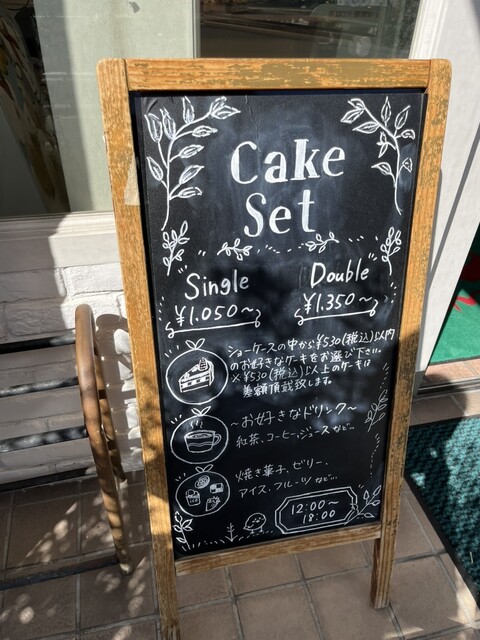 Cake
Set
Single Double
¥1.050〜 ¥1.350〜
ショーケースの中から¥530(税込)以内
のお好きなケーキをお選び下さい。
※¥530(税込)以上のケーキは
差額頂戴致します。
〜お好きなドリンク〜
紅茶、コーヒー、ジュースなど…
焼き菓子、ゼリー、
アイス、フルーツなど…
12:00〜
18:00